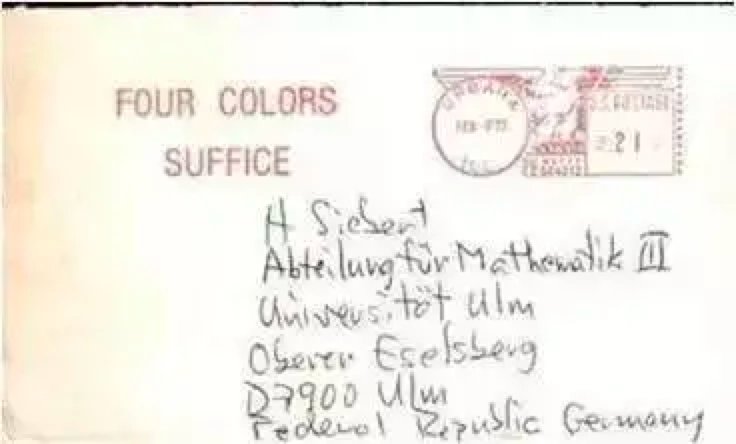 FOUR COLORS
SUFFICE
URBANA
FEB
ILL.
U.S. POSTAGE
21
H Siebert
Abteilung für Mathematik III
Universität Ulm
Oberer Eselsberg
D7900 Ulm
Federal Republic Germany